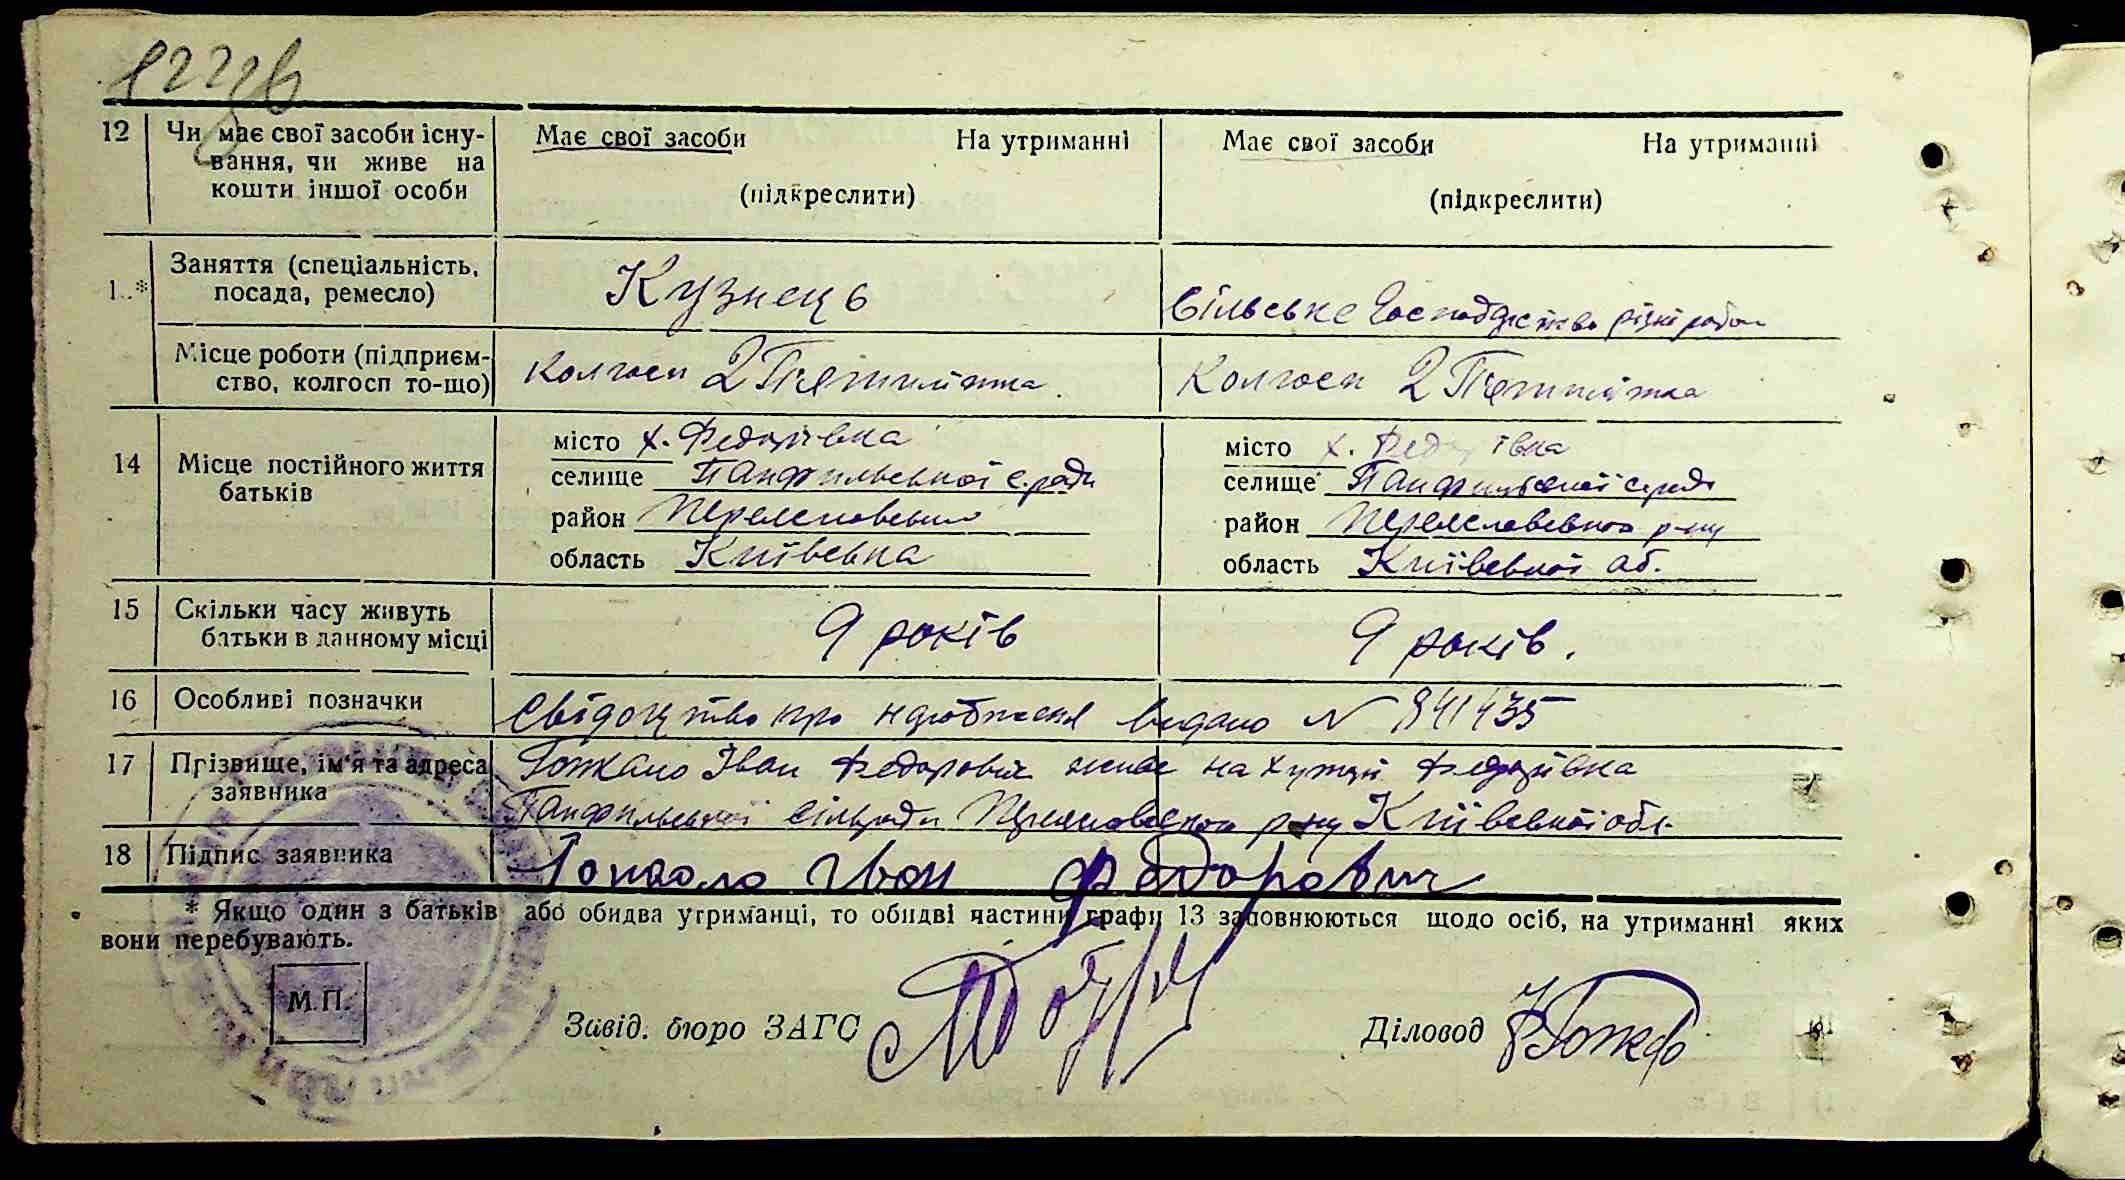 12 Чи має свої засоби існу- Має свої засоби На утриманні Має свої засоби На утриманні
вання, чи живе на
кошти іншої особи (підкреслити) (підкреслити)
Заняття (спеціальність,
посада, ремесло) Кузнець Сільське господарство різні робот
Місце роботи (підприєм-
ство, колгосп то-що) Колгосп 2 П'ятилітка Колгосп 2 П'ятилітка
14 Місце постійного життя
батьків
місто х. Федорівка місто х. Федорівка
селище Панфильської с.ради селище Панфильської с.ради
район Переяславський район Переяславського р-ну
область Київська область Київської об.
15 Скільки часу живуть
батьки в данному місці 9 років 9 років.
16 Особливі позначки Свідоцтво про народження видано N 841435
17 Прізвище, ім'я та адреса Іван Федорович живе на хуторі Федорівка
заявника Панфильської сільради Переяславського р-ну Київської обл.
18 Підпис заявника Іван Федорович
* Якщо один з батьків або обидва утриманці, то обидві частини графи 13 заповнюються щодо осіб, на утриманні яких
вони перебувають.
М.П.
Завід. бюро ЗАГС Діловод